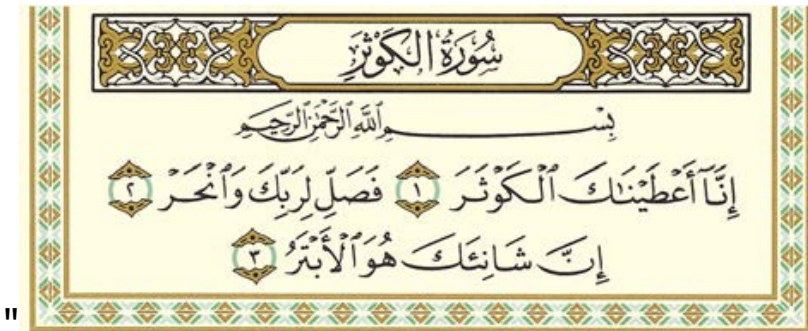 سُورَةُ الْكَوْثَرِ
بِسْمِ اللَّهِ الرَّحْمَٰنِ الرَّحِيمِ
إِنَّآ أَعْطَيْنَٰكَ ٱلْكَوْثَرَ ١ فَصَلِّ لِرَبِّكَ وَٱنْحَرْ ٢
إِنَّ شَانِئَكَ هُوَ ٱلْأَبْتَرُ ٣
"